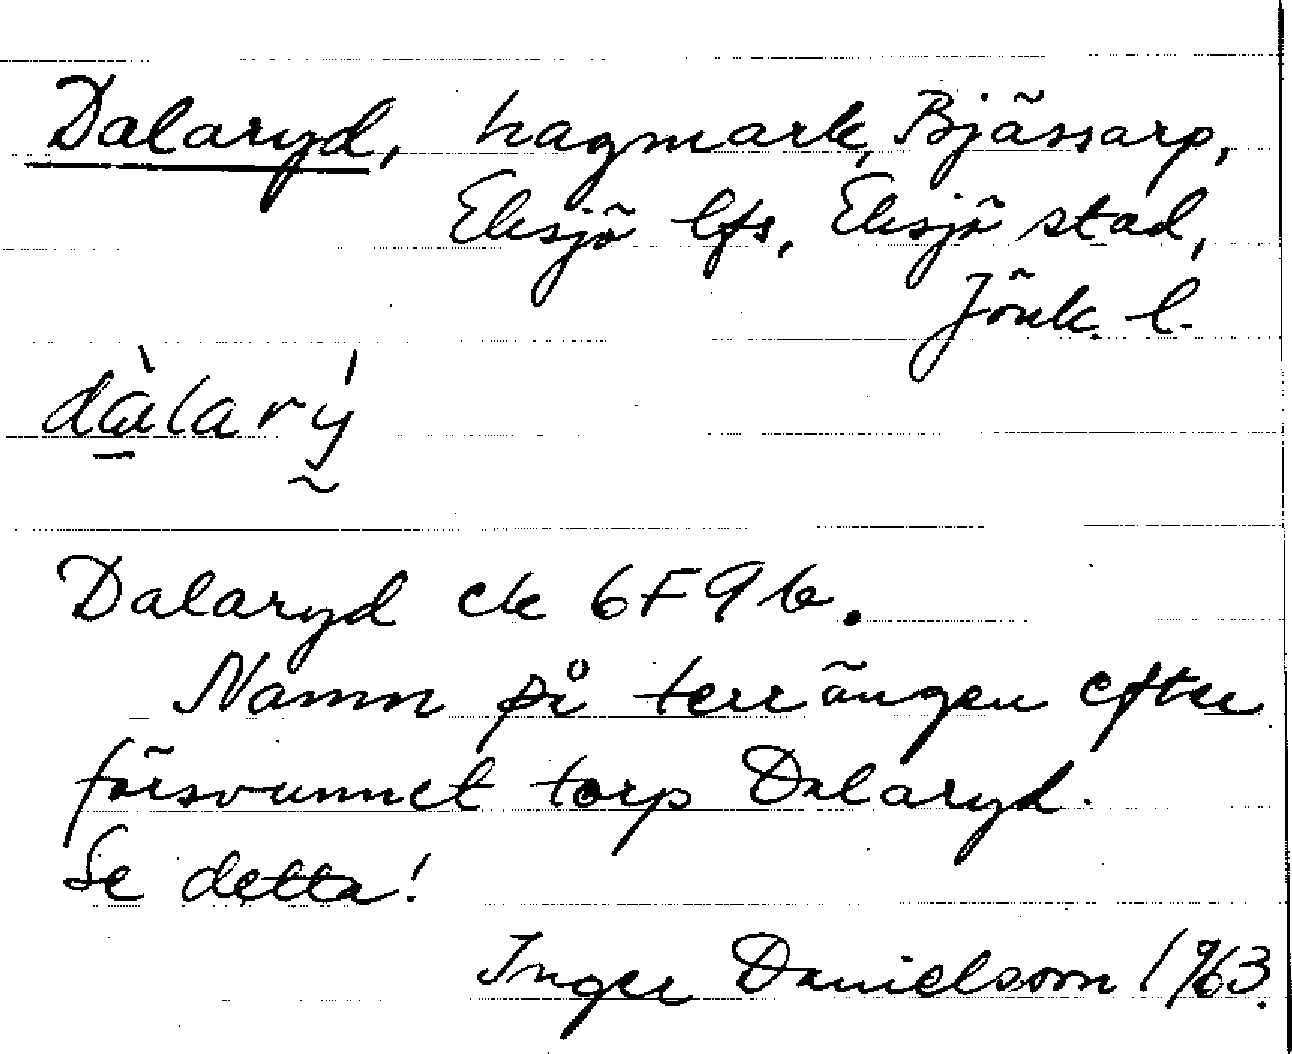 Dalaryd, hagmark, Bjässarp,
Eksjö lfs, Eksjö stad,
Jönk. l.
dàlarý
Dalaryd ek 6F9b.
Namn på terrängen efter
försvunnet torp Dalaryd.
Se detta!
Inger Danielsson 1963.